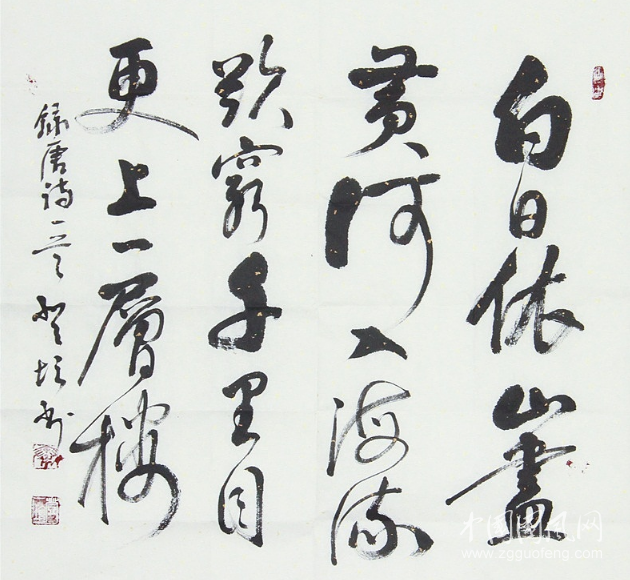 白日依山盡
黄河入海流
欲窮千里目
更上一層樓
録唐詩一首
中国国风网
www.zgguofeng.com